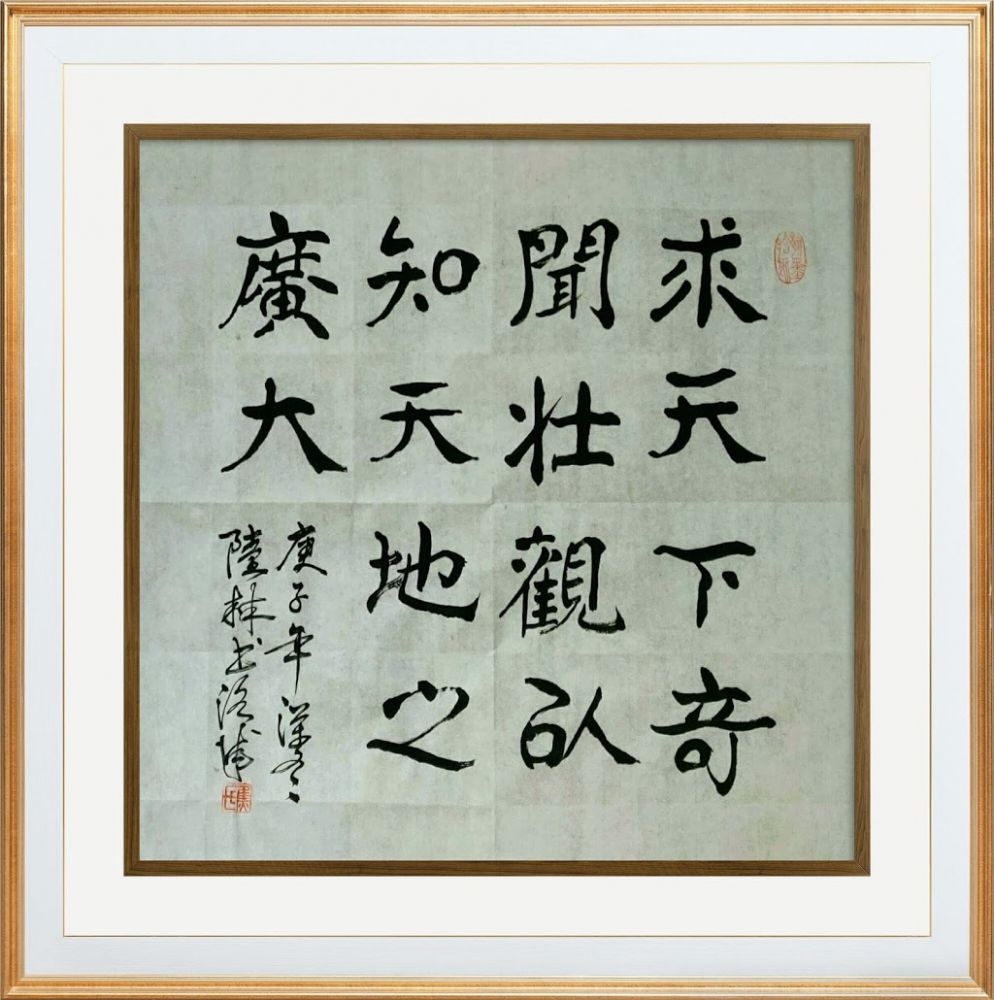 求天下奇
聞壯觀以
知天地之
廣大
庚子年深冬
陸林書於